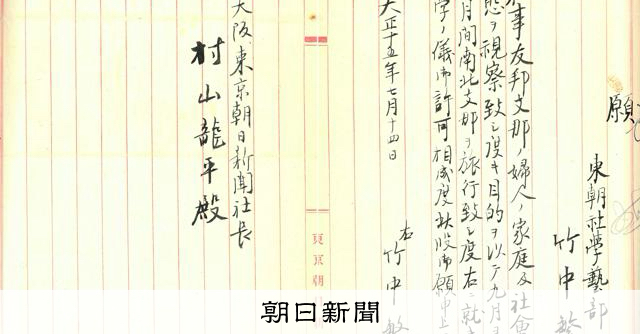 願
東朝社學藝部
竹中繁
事友邦支那ノ婦人ノ家庭及社會
態ヲ視察致シ度キ目的ヲ以テ九月
月間南北支那ヲ旅行致シ度右ニ就
ノ儀御許可相成度此段御願申上
大正十五年七月十四日
右 竹中繁
東京朝
大阪東京朝日新聞社長
村山龍平殿
朝日新聞